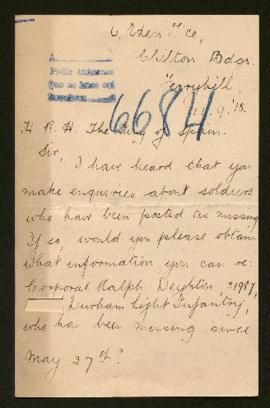 6, Eden Tce,
Chilton Bdgs.
Ferryhill.
9.'18.
6684
H. R. H. The King of Spain.
Sir,
I have heard that you
make enquiries about soldiers
who have been posted as missing.
If so, would you please obtain
what information you can re:
Corporal Ralph Deighton,
Durham Light Infantry,
who has been missing since
May 27th?